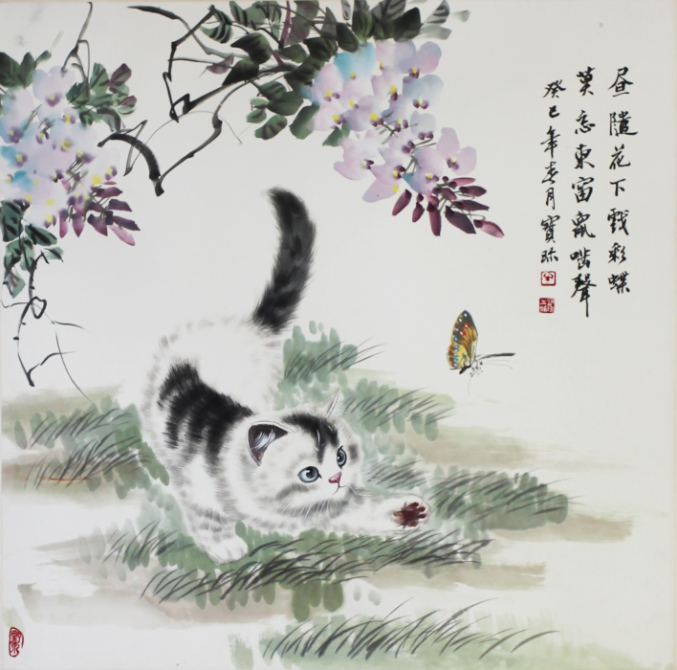 昼随花下戏彩蝶
莫忘東窗鼠啮聲
癸巳年春月寶珎